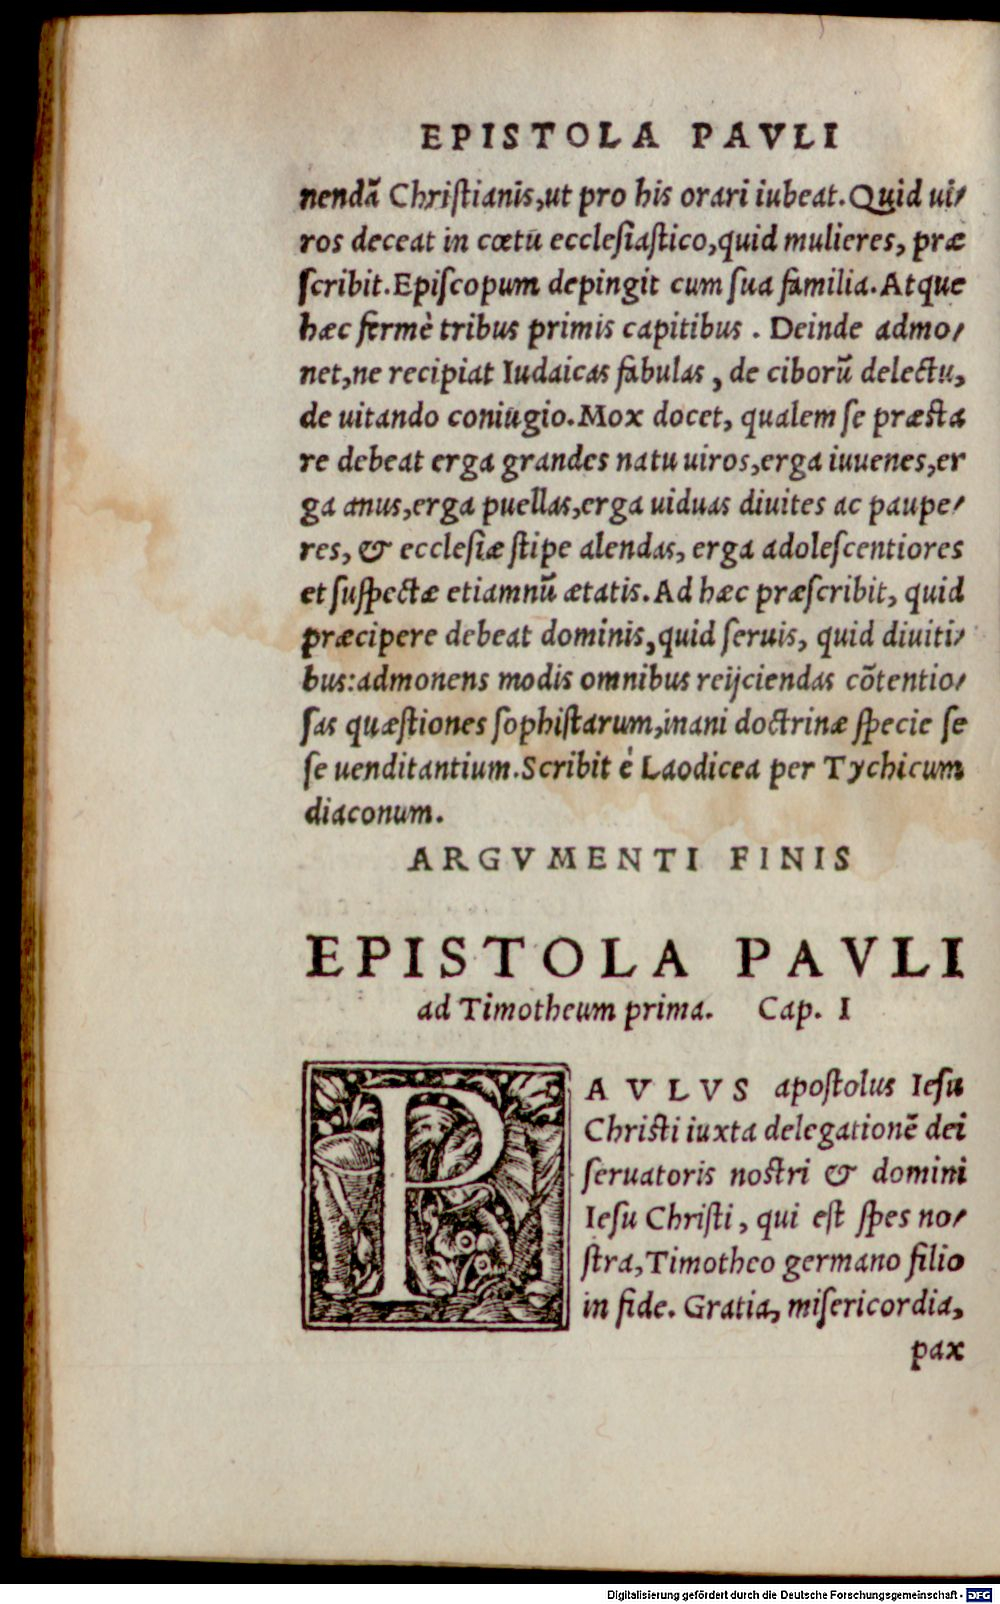 EPISTOLA PAVLI
nendã Chriſtianis,ut pro his orari iubeat.Quid ui⸗
ros deceat in cœtu eccleſiaſtico,quid mulieres, præ
ſcribit.Epiſcopum depingit cum ſua familia.Atque
hæc fermè tribus primis capitibus . Deinde admo⸗
net,ne recipiat Iudaicas fabulas , de ciborũ delectu,
de uitando coniugio.Mox docet, qualem ſe præsta
re debeat erga grandes natu uiros,erga iuuenes,er
ga anus,erga puellas,erga uiduas diuites ac paupe⸗
res, & eccleſiæ ſtipe alendas, erga adoleſcentiores
et ſuſpectæ etiamnũ ætatis.Ad hæc præſcribit, quid
præcipere debeat dominis,quid ſeruis, quid diuiti⸗
bus:admonens modis omnibus reijciendas cõtentio⸗
ſas quæſtiones ſophiſtarum,inani doctrinæ ſpecie ſe
ſe uenditantium.Scribit è Laodicea per Tychicum
diaconum.
ARGVMENTI FINIS
EPISTOLA PAVLI
ad Timotheum prima. Cap. I
PAVLVS apoſtolus Ieſu
Christi iuxta delegationẽ dei
ſeruatoris nostri & domini
Ieſu Chriſti, qui eſt ſpes no⸗
ſtra,Timotheo germano filio
in fide. Gratia, miſericordia,
pax
Digitalisierung gefördert durch die Deutsche Forschungsgemeinschaft - DFG